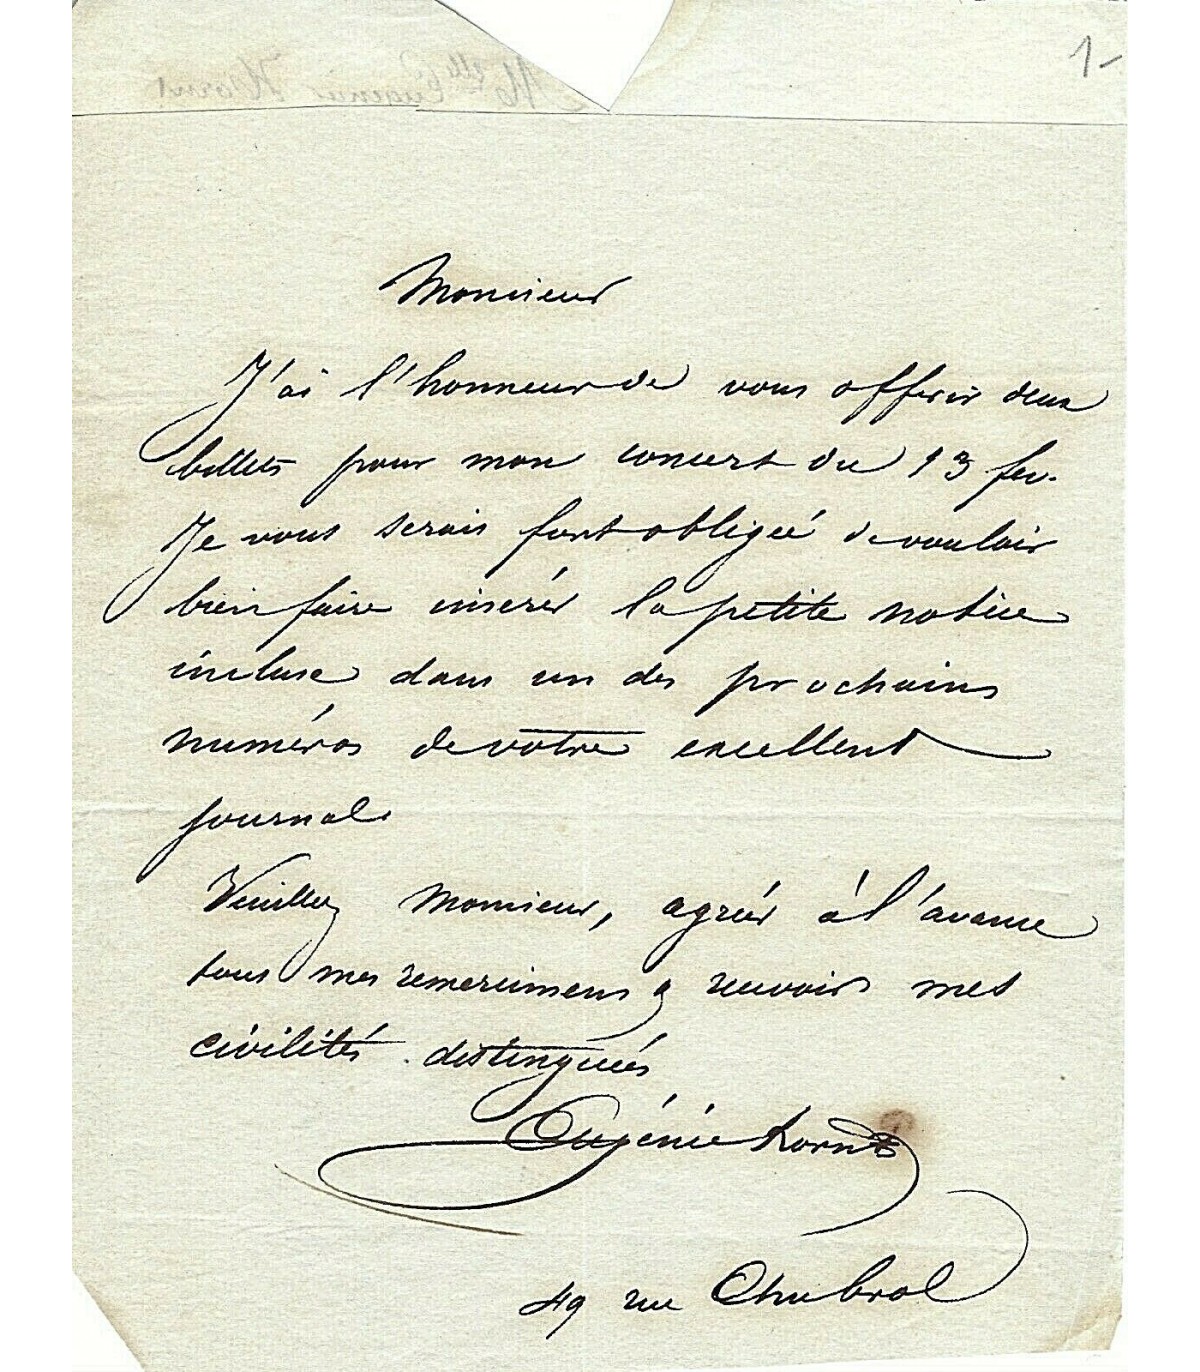 1-
Mlle Eugénie
Monsieur
J'ai l'honneur de vous offrir deux
billets pour mon concert du 13 fev.
Je vous serais fort obligée de vouloir
bien faire insérer la petite notice
incluse dans un des prochains
numéros de votre excellent
journal.
Veuillez Monsieur, agréer à l'avance
tous mes remerciemens & recevoir mes
civilités distinguées
Eugénie
49 rue Chabrol